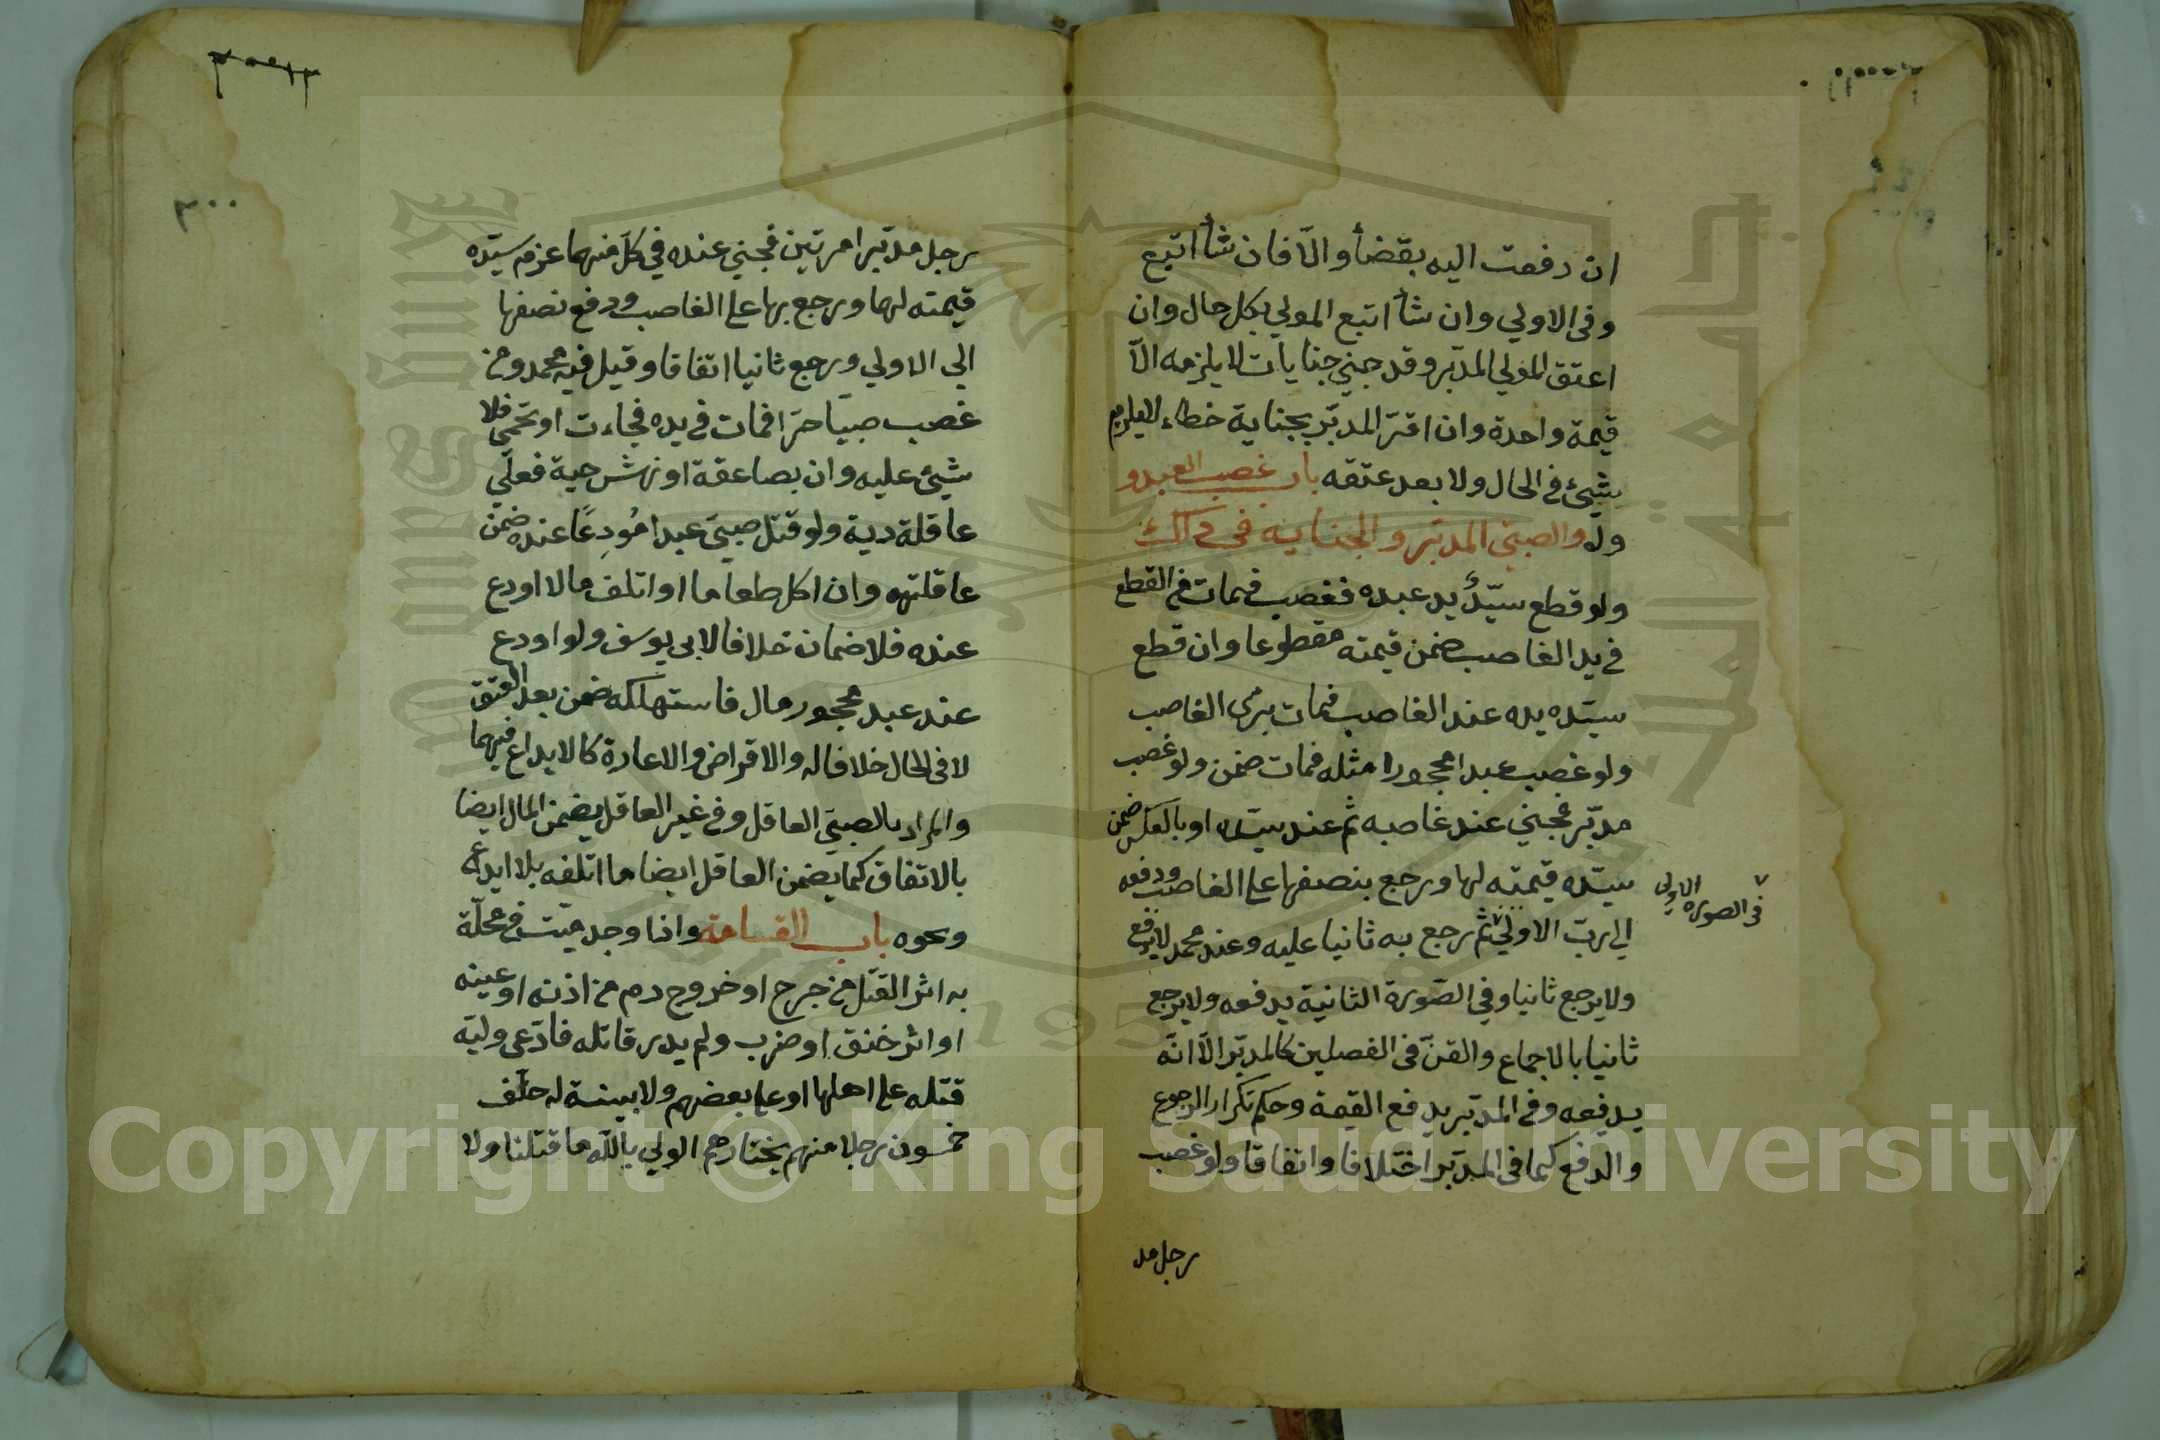 ان دفعت اليه بقضأ والّا فان شأ اتبع
وفى الاولي وان شأ اتبع المولي بكل حال وان
اعتق المولي المدبّر وقد جني جنايات لا يلزمه الّا
قيمة واحدة وان اقرّ المدبّر بجناية خطاء لا يلزم
شيئ فى الحال ولا بعد عتقه باب غصب العبد و
ولد والصبيّ المدبّر والجناية فى ذالك
ولو قطع سيّد يد عبده فغصب فمات فى القطع
فى يد الغاصب ضمن قيمته مقطوعا وان قطع
سيّده يده عند الغاصب فمات برئ الغاصب
ولو غصب عبدا محجورا مثله فمات ضمن ولو غصب
مدبّر فجني عند غاصبه ثم عند سيّده او بالعكس ضمن
سيّده قيمته لهما ورجع بنصفها على الغاصب ودفعه
الى ربّ الاولي ثم رجع به ثانيا عليه وعند محمد لا يدفع
ولا يرجع ثانيا وفي الصّورة الثانية يدفعه ولا يرجع
ثانيا بالاجماع والقنّ فى الفصلين كالمدبّر الّا انّه
يدفعه وفى المدبّر يدفع القيمة وحكم تكرار الرجوع
والدفع كما فى المدبّر اختلافا واتفاقا ولو غصب
رجل مد
فى الصورة الاولى
٣٠٠
رجل مدبّرا مرتين فجني عنده في كلّ منهما غرم سيّده
قيمته لهما ورجع بها على الغاصب ودفع نصفها
الي الاولي ورجع ثانيا اتفاقا وقيل فيه محمد ومن
غصب صبيّا حرّا فمات فى يده فجاءت او بحمى فلا
شيئ عليه وان بصاعقة او نهش حية فعلي
عاقلة دية ولو قتل صبيّ عبدا مُودِعًا عنده ضمن
عاقلته وان اكل طعاما او اتلف مالا اودع
عنده فلا ضمان خلافا لابى يوسف ولو اودع
عند عبد محجور مال فاستهلكه ضمن بعد العتق
لا فى الحال خلافا له والاقراض والاعارة كالايداع فيهما
والمراد بالصبيّ العاقل وفى غير العاقل يضمن المال ايضا
بالاتفاق كما يضمن العاقل ايضا ما اتلفه بلا ايداع
ونحوه باب القسامة واذا وجد ميّت فى محلّة
به اثر القتل من جرح او خروج دم من اذنه او عينه
او اثر خنق او ضرب ولم يدر قاتله فادّعى وليّه
قتله على اهلها او على بعضهم ولا بينة له حلّف
خمسون رجلا منهم يختارهم الولي بالله ما قتلنا ولا
Copyright © King Saud University
King Saud University
جامعة الملك سعود
195